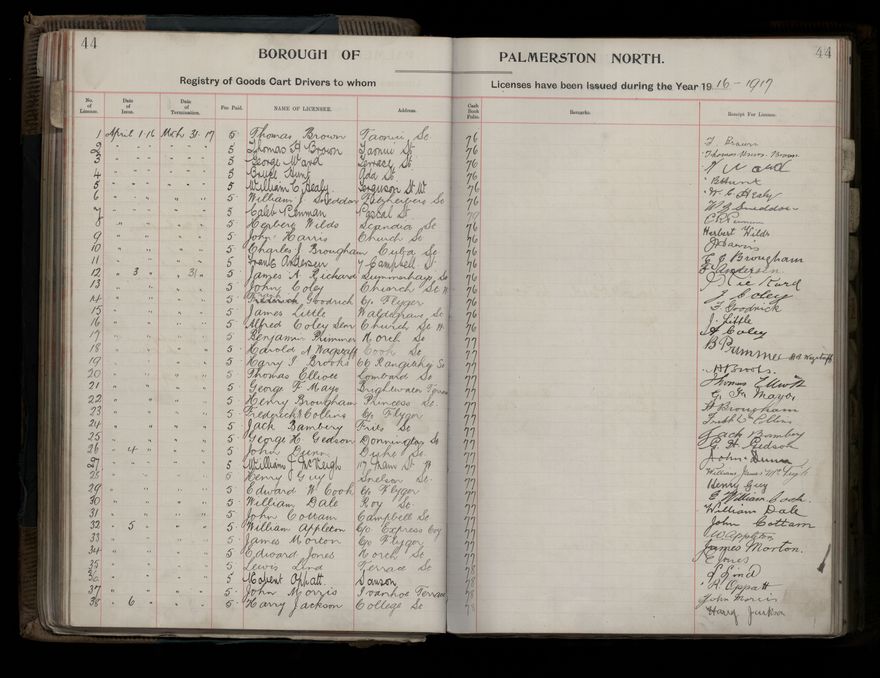 44
44
BOROUGH OF PALMERSTON NORTH.
Registry of Goods Cart Drivers to whom Licenses have been issued during the Year 1916-1917
No. of License. Date of Issue. Date of Termination. Fee Paid. NAME OF LICENSEE. Address. Cash Book Folio. Remarks. Receipt For License.
1 April 1 16 Mch 31 17 5 Thomas Brown Taonui St 76 T. Brown
2 " " " " " " 5 Thomas H Brown Taonui St 76
3 " " " " " " 5 George Ward Terrace St 76
4 " " " " " " 5 Bruce Hunt Ada St 76 B Hunt
5 " " " " " " 5 William C Healy Ferguson St W 76 W. C Healy
6 " " " " " " 5 William J Sneddon 76 W J Sneddon
7 " " " " " " 5 Caleb Penman Pascal St C Penman
8 " " " " " " 5 Herberg Wilds Scandia St 76 Herbert Wilds
9 " " " " " " 5 John Harris Church St 76 J Harris
10 " " " " " " 5 Charles J Brougham Cuba St 76 C J Brougham
11 " " " " " " 5 Frank Andersen 7 Campbell St 76 F Andersen
12 " 3 " " 31 " 5 James A Rickard Summerhays St 76
13 " " " " " " 5 John Coley Church St W 76 J Coley
14 " " " " " " 5 Frank Goodrick C/o Flyger 76 F Goodrick
15 " " " " " " 5 James Little Waldegrave St 76 J. Little
16 " " " " " " 5 Alfred Coley Senr Church St W 76 A Coley
17 " " " " " " 5 Benjamin Primmer North St 77 B Primmer
18 " " " " " " 5 Harold A Wagstaff Cook St 77 H A Wagstaff
19 " " " " " " 5 Harry I Brooks 66 Rangitikei St 77 H Brooks
20 " " " " " " 5 Thomas Elliott Lombard St 77 Thomas Elliott
21 " " " " " " 5 George F Mayo Brightwater Terrace 77 G. F. Mayo
22 " " " " " " 5 Henry Brougham Princess St 77 H Brougham
23 " " " " " " 5 Frederick Collins C/o Flyger 77
24 " " " " " " 5 Jack Bambery Fitz St 77 Jack Bambery
25 " " " " " " 5 George H Gedson Donnington St 77 G H Gedson
26 " 4 " " " " 5 John Dunn Duke St 77 John Dunn
27 " " " " " " 5 William J McHugh 117 Main St W 77 William James McHugh
28 " " " " " " 5 Henry Guy Snelson St 77 Henry Guy
29 " " " " " " 5 Edward W Cook C/o Flyger 77 E William Cook
30 " " " " " " 5 William Dale Roy St 77 William Dale
31 " " " " " " 5 John Cottam Campbell St 77 John Cottam
32 " 5 " " " " 5 William Appleton C/o Express Coy 77 W Appleton
33 " " " " " " 5 James Morton C/o Flyger 77 James Morton.
34 " " " " " " 5 Edward Jones North St E Jones
35 " " " " " " 5 Lewis Lind Terrace St 78 L Lind
36 " " " " " " 5 Robert Oppatt Dawson 78 R Oppatt
37 " " " " " " 5 John Morris Ivanhoe Terrace 78 John Morris
38 " 6 " " " " 5 Harry Jackson College St 78 Harry Jackson